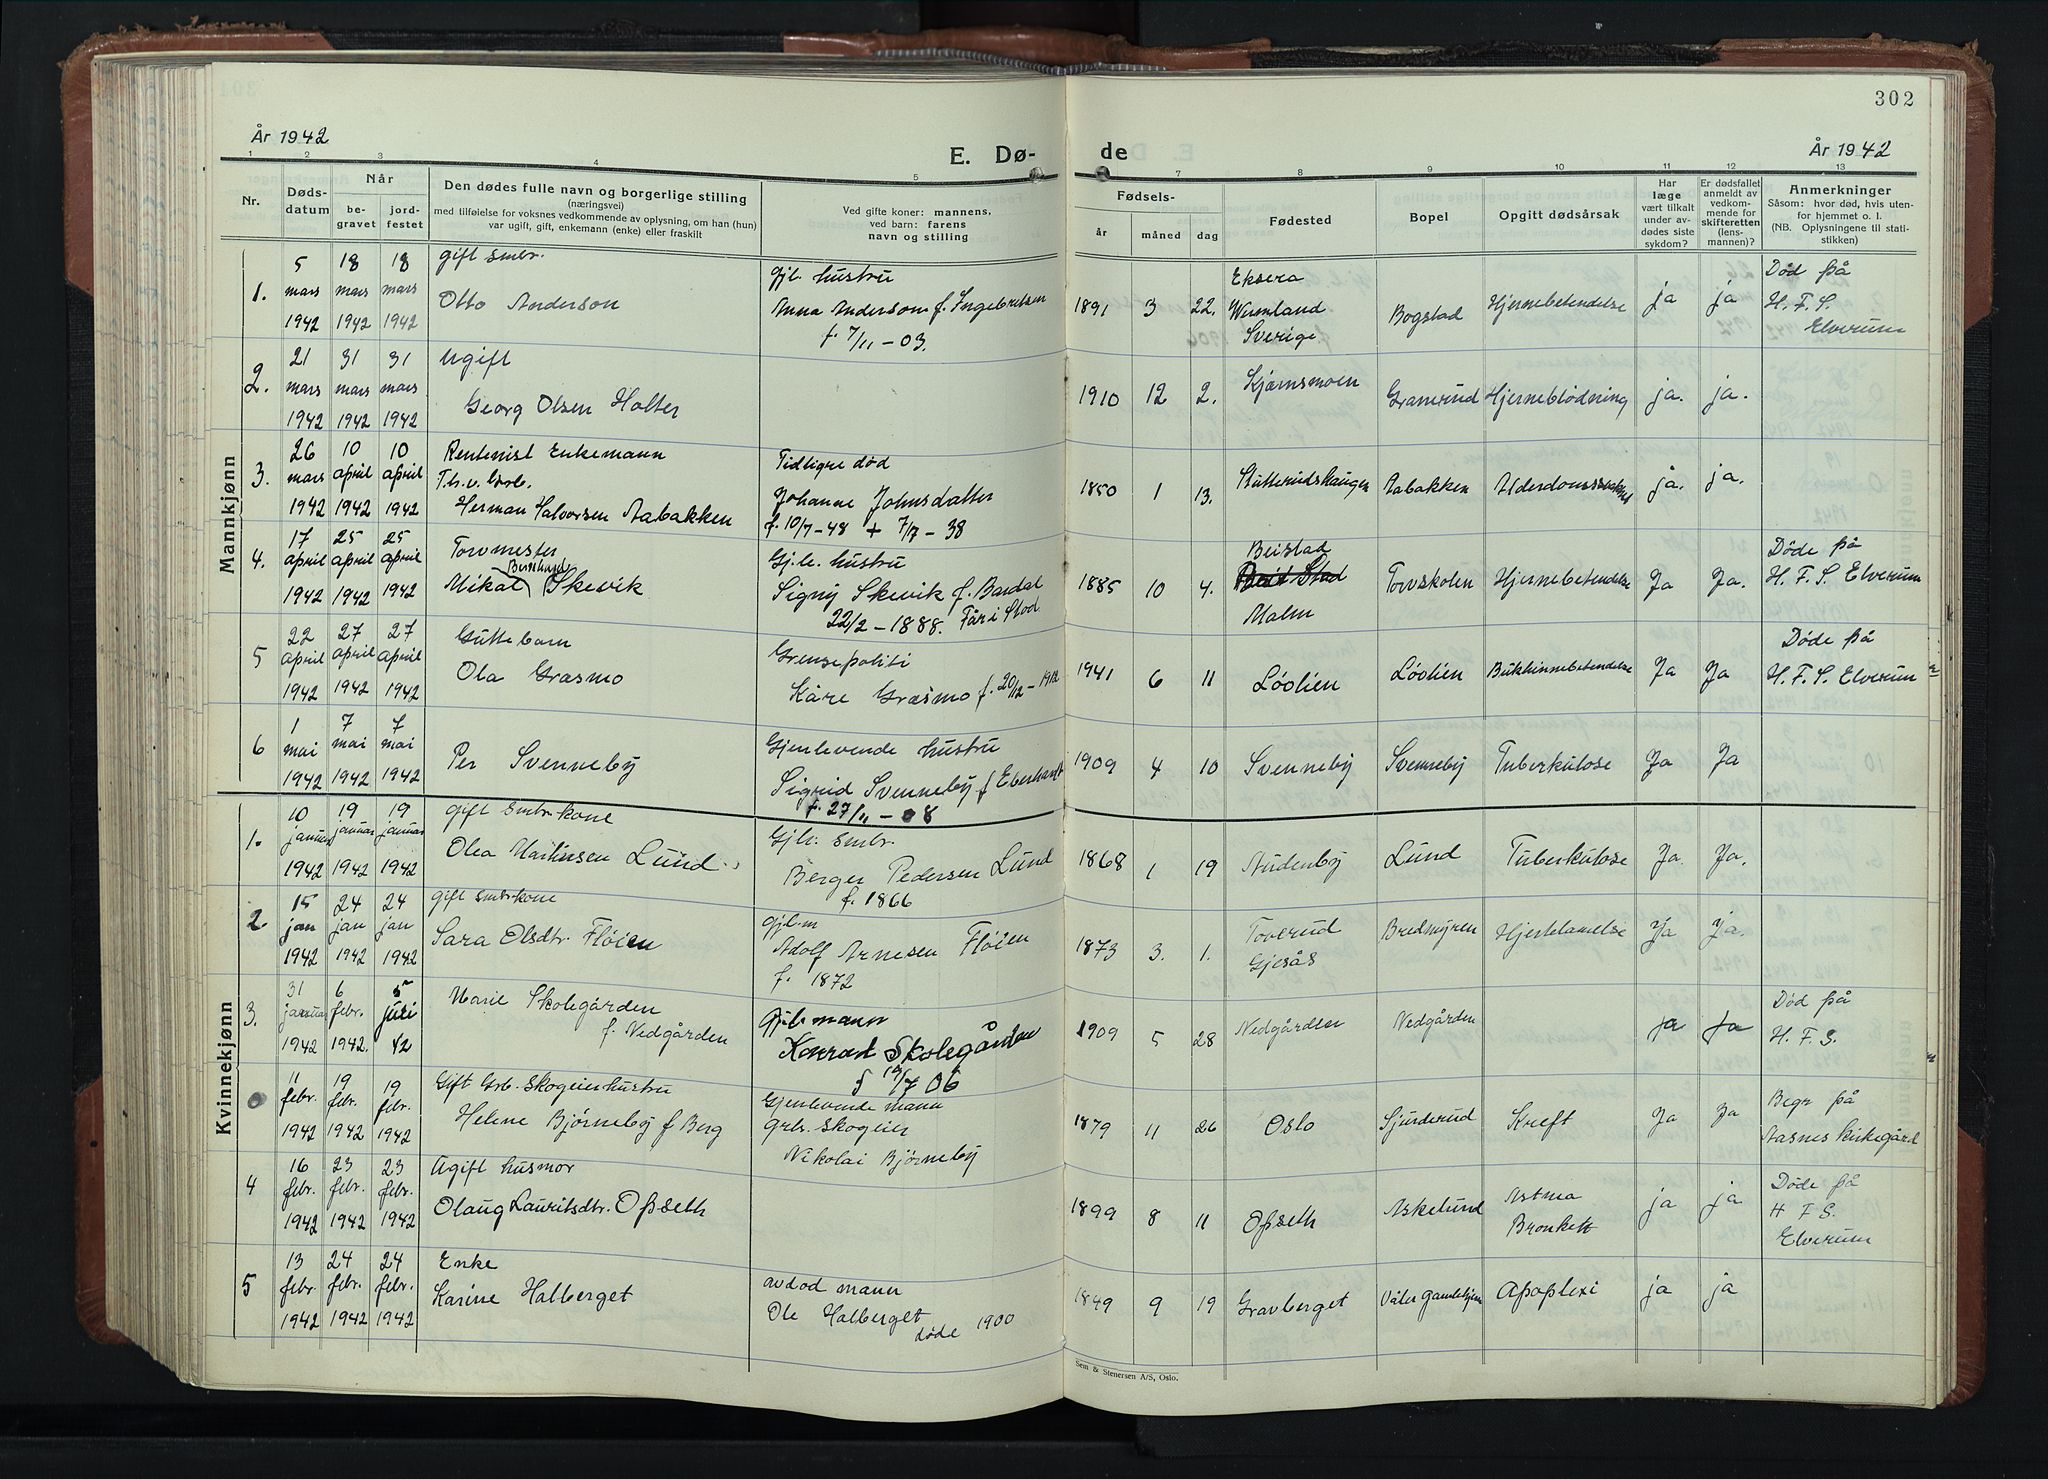 302
År 1942
E. Dø-
de
År 1942
1 2 3 4 5 7 8 9 10 11 12 13
Nr.
Døds-
datum
Når
be-
gravet
jord-
festet
Den dødes fulle navn og borgerlige stilling
(næringsvei)
med tilføielse for voksnes vedkommende av oplysning, om han (hun)
var ugift, gift, enkemann (enke) eller fraskilt
Ved gifte koner: mannens,
ved barn: farens
navn og stilling
Fødsels-
år måned dag
Fødested
Bopel
Opgitt dødsårsak
Har
læge
vært tilkalt
under av-
dødes siste
sykdom?
Er dødsfallet
anmeldt av
vedkom-
mende for
skifteretten
(lens-
mannen)?
Anmerkninger
Såsom: hvor død, hvis uten-
for hjemmet o. l.
(NB. Oplysningene til stati-
stikken)
Mannkjønn
1.
5 mars 1942
18 mars 1942
18 mars 1942
gift smbr.
Otto Anderson
Gjl. hustru
Anna Anderson f. Ingebretsen
f. 7/11 - 03.
1891 3 22.
Eksera
Wermland
Sverige
Bogstad
Hjernebetendelse
ja
ja
Død på
H. F. S.
Elverum
2.
21 mars 1942
31 mars 1942
31 mars 1942
Ugift
Georg Olsen Holter
1910 12 2.
Kjernsmoen
Granerud
Hjerneblødning
ja.
ja.
3.
26 mars 1942
10 april 1942
10 april 1942
Rentenist Enkemann
Herman Halvorsen Aabakken
Tidligre død
Johanne Johnsdatter
f. 10/7-48 + 7/7-38
1850 1 13.
Stutterudshaugen
Aabakken
ja.
ja.
4.
17 april 1942
25 april 1942
25 april 1942
Torvmester
Bernhard
Mikal Skevik
Gj.le. hustru
Signy Skevik f. Bardal
22/2 - 1888. Får i Stod
1885 10 4.
Beistad
Malm
Torvskolen
Hjernebetendelse
Ja
Ja.
Døde på
H. F. S. Elverum
5
22 april 1942
27 april 1942
27 april 1942
Guttebarn
Ola Græsmo
Grensepoliti
Kåre Græsmo f. 20/12 - 1912
1941 6 11
Løvlien
Løvlien
Bukhinnebetendelse
Ja
Ja
Døde på
H. F. S. Elverum
6
1 mai 1942
7 mai 1942
7 mai 1942
Per Svenneby
Gjenlevende hustru
Sigrid Svenneby f Eberhardt
f. 27/11 - 08
1909 4 10
Svenneby
Svenneby
Tuberkulose
Ja
Ja
Kvinnekjønn
1.
10 januar 1942
19 januar 1942
19 januar 1942
gift smbr.kone
Olea Martinsen Lund
Gjl. smbr.
Berger Pedersen Lund
f. 1866
1868 1 19
Audenby
Lund
Tuberkulose
Ja
Ja.
2.
15 jan 1942
24 jan 1942
24 jan 1942
gift smbrkone
Sara Olsdtr. Fløien
gjl. m
Adolf Arnesen Fløien
f. 1872
1873 3. 1.
Toverud
Gjesås
Bredmyren
Hjertelamelse
Ja
Ja.
3.
31 januar 1942
6 febr. 1942.
5 juli 42
Marie Skolegården
f. Nedgården
Gjl. mann
Konrad Skolegården
f 19/7 06
1909 5 28
Nedgården
Nedgården
ja
ja
Død på
H. F. S.
11 febr. 1942
19 febr. 1942
19 febr. 1942
Gift Grb. Skogeierhustru
Helene Bjørneby f Berg
Gjenlevende mann
grb. skogeier
Nikolai Bjørneby
1879 11 26
Oslo
Sjunderud
Kreft
Ja
Ja
Begr på
Aasnes kirkegård
4
16 febr. 1942
23 febr. 1942
23 febr. 1942
Ugift husmor
Olaug Lauritsdtr. Opseth
1899 8 11
Opseth
Askelund
Astma
Bronkett
ja
ja
Døde på
H F S.
Elverum
5
13 febr. 1942
24 febr. 1942
24 febr. 1942
Enke
Karine Halberget
avdød mann
Ole Halberget
døde 1900
1849 9 19
Gravberget
Våler gamlehjem
Apoplexi
ja
ja
Sem & Stenersen A/S, Oslo.